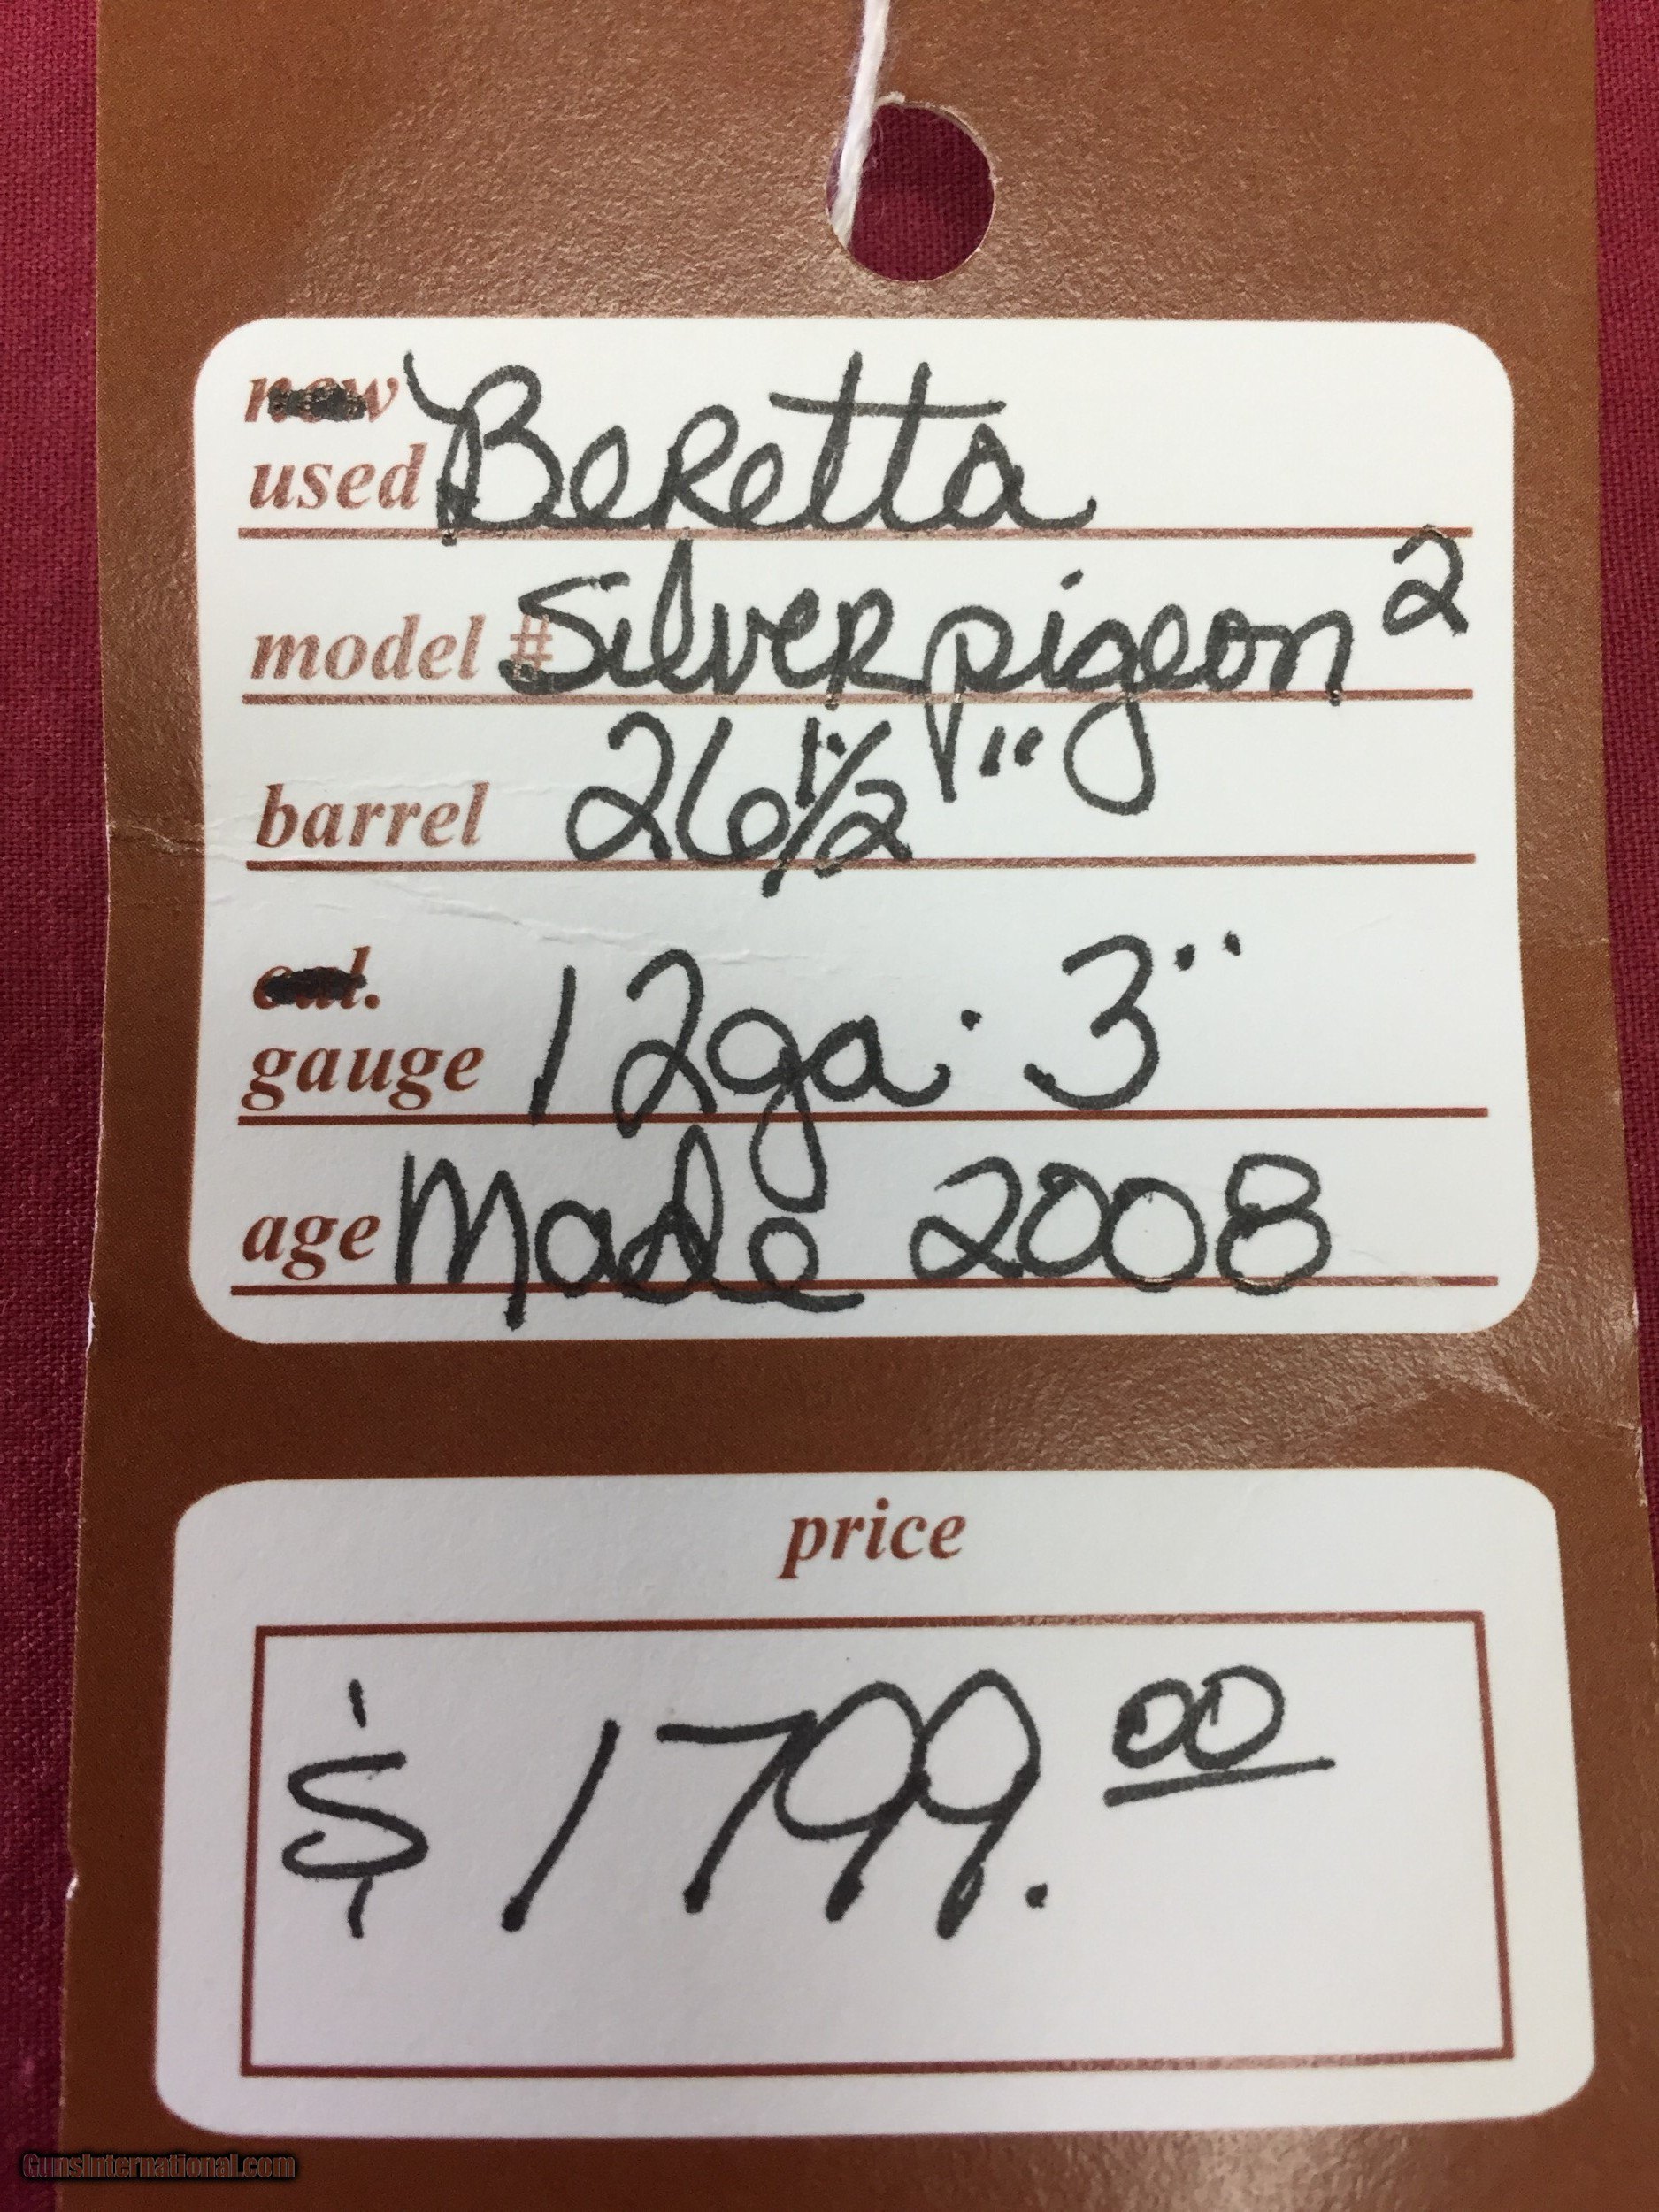 new
used Beretta
model # Silver pigeon 2
barrel 26 1/2 "
cal.
gauge 12ga. 3"
age Made 2008
price
$1799.00
GunsInternational.com